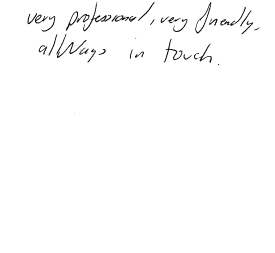 very professional, very friendly,
allWays in touch.